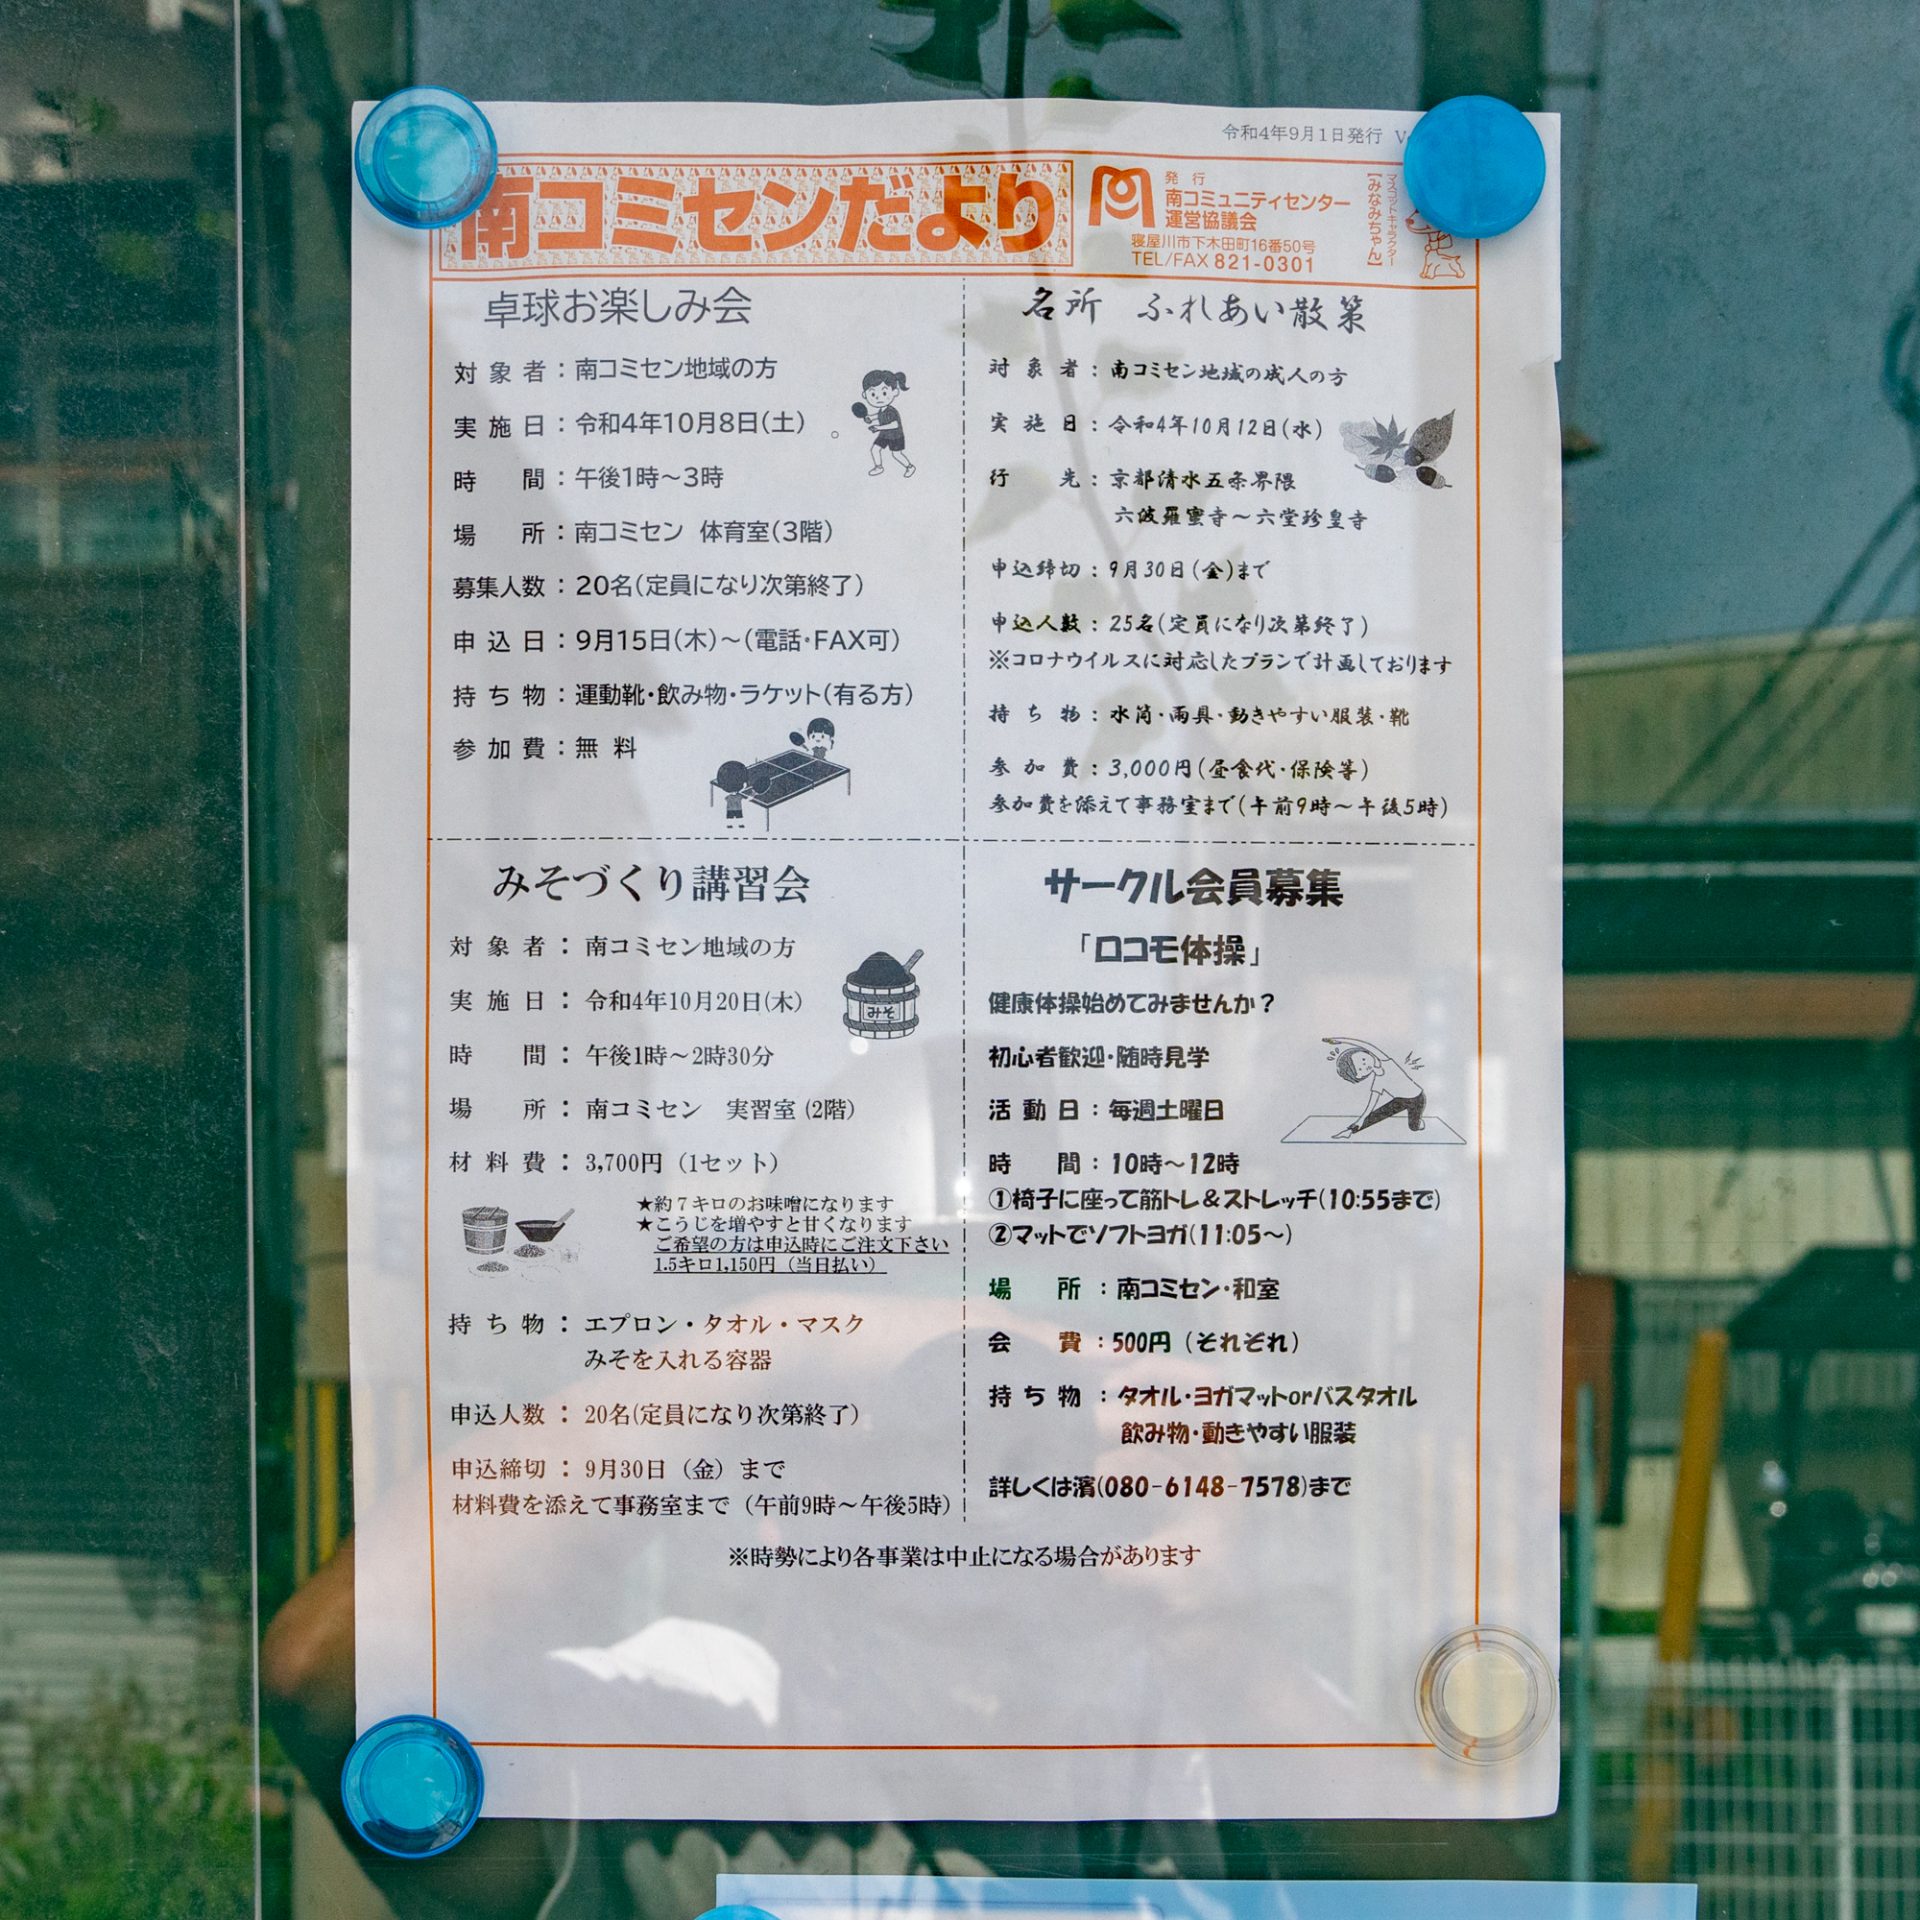 令和4年9月1日発行
南コミセンだより
発行
南コミュニティセンター
運営協議会
寝屋川市下木田町16番50号
TEL/FAX 821-0301
マスコットキャラクター
【みなみちゃん】
卓球お楽しみ会
対象者：南コミセン地域の方
実施日：令和4年10月8日(土)
時　間：午後1時～3時
場　所：南コミセン 体育室(3階)
募集人数：20名(定員になり次第終了)
申込日：9月15日(木)～(電話・FAX可)
持ち物：運動靴・飲み物・ラケット(有る方)
参加費：無料
名所 ふれあい散策
対象者：南コミセン地域の成人の方
実施日：令和4年10月12日(水)
行　先：京都清水五条界隈
六波羅蜜寺～六堂珍皇寺
申込締切：9月30日(金)まで
申込人数：25名(定員になり次第終了)
※コロナウイルスに対応したプランで計画しております
持ち物：水筒・雨具・動きやすい服装・靴
参加費：3,000円(昼食代・保険等)
参加費を添えて事務室まで(午前9時～午後5時)
みそづくり講習会
対象者：南コミセン地域の方
実施日：令和4年10月20日(木)
時　間：午後1時～2時30分
場　所：南コミセン 実習室(2階)
みそ
材料費：3,700円（1セット）
★約７キロのお味噌になります
★こうじを増やすと甘くなります
ご希望の方は申込時にご注文下さい
1.5キロ1,150円（当日払い）
持ち物：エプロン・タオル・マスク
みそを入れる容器
申込人数：20名(定員になり次第終了)
申込締切：9月30日（金）まで
材料費を添えて事務室まで（午前9時～午後5時）
サークル会員募集
「ロコモ体操」
健康体操始めてみませんか？
初心者歓迎・随時見学
活動日：毎週土曜日
時　間：10時～12時
①椅子に座って筋トレ＆ストレッチ(10:55まで)
②マットでソフトヨガ(11:05～)
場　所：南コミセン・和室
会　費：500円（それぞれ）
持ち物：タオル・ヨガマットorバスタオル
飲み物・動きやすい服装
詳しくは濱(080-6148-7578)まで
※時勢により各事業は中止になる場合があります